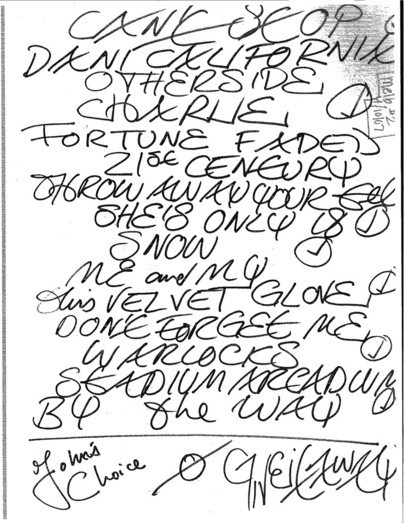 CAN'T STOP
DANI CALIFORNIA
OTHERSIDE
CHARLIE
FORTUNE FADED
21st CENTURY
THROW AWAY YOUR tel
SHE'S ONLY 18
SNOW
ME and MY
this VELVET GLOVE
DON'T FORGET ME
WARLOCKS
STADIUM ARCADIUM
BY the WAY
John's
Choice
GIVE IT AWAY